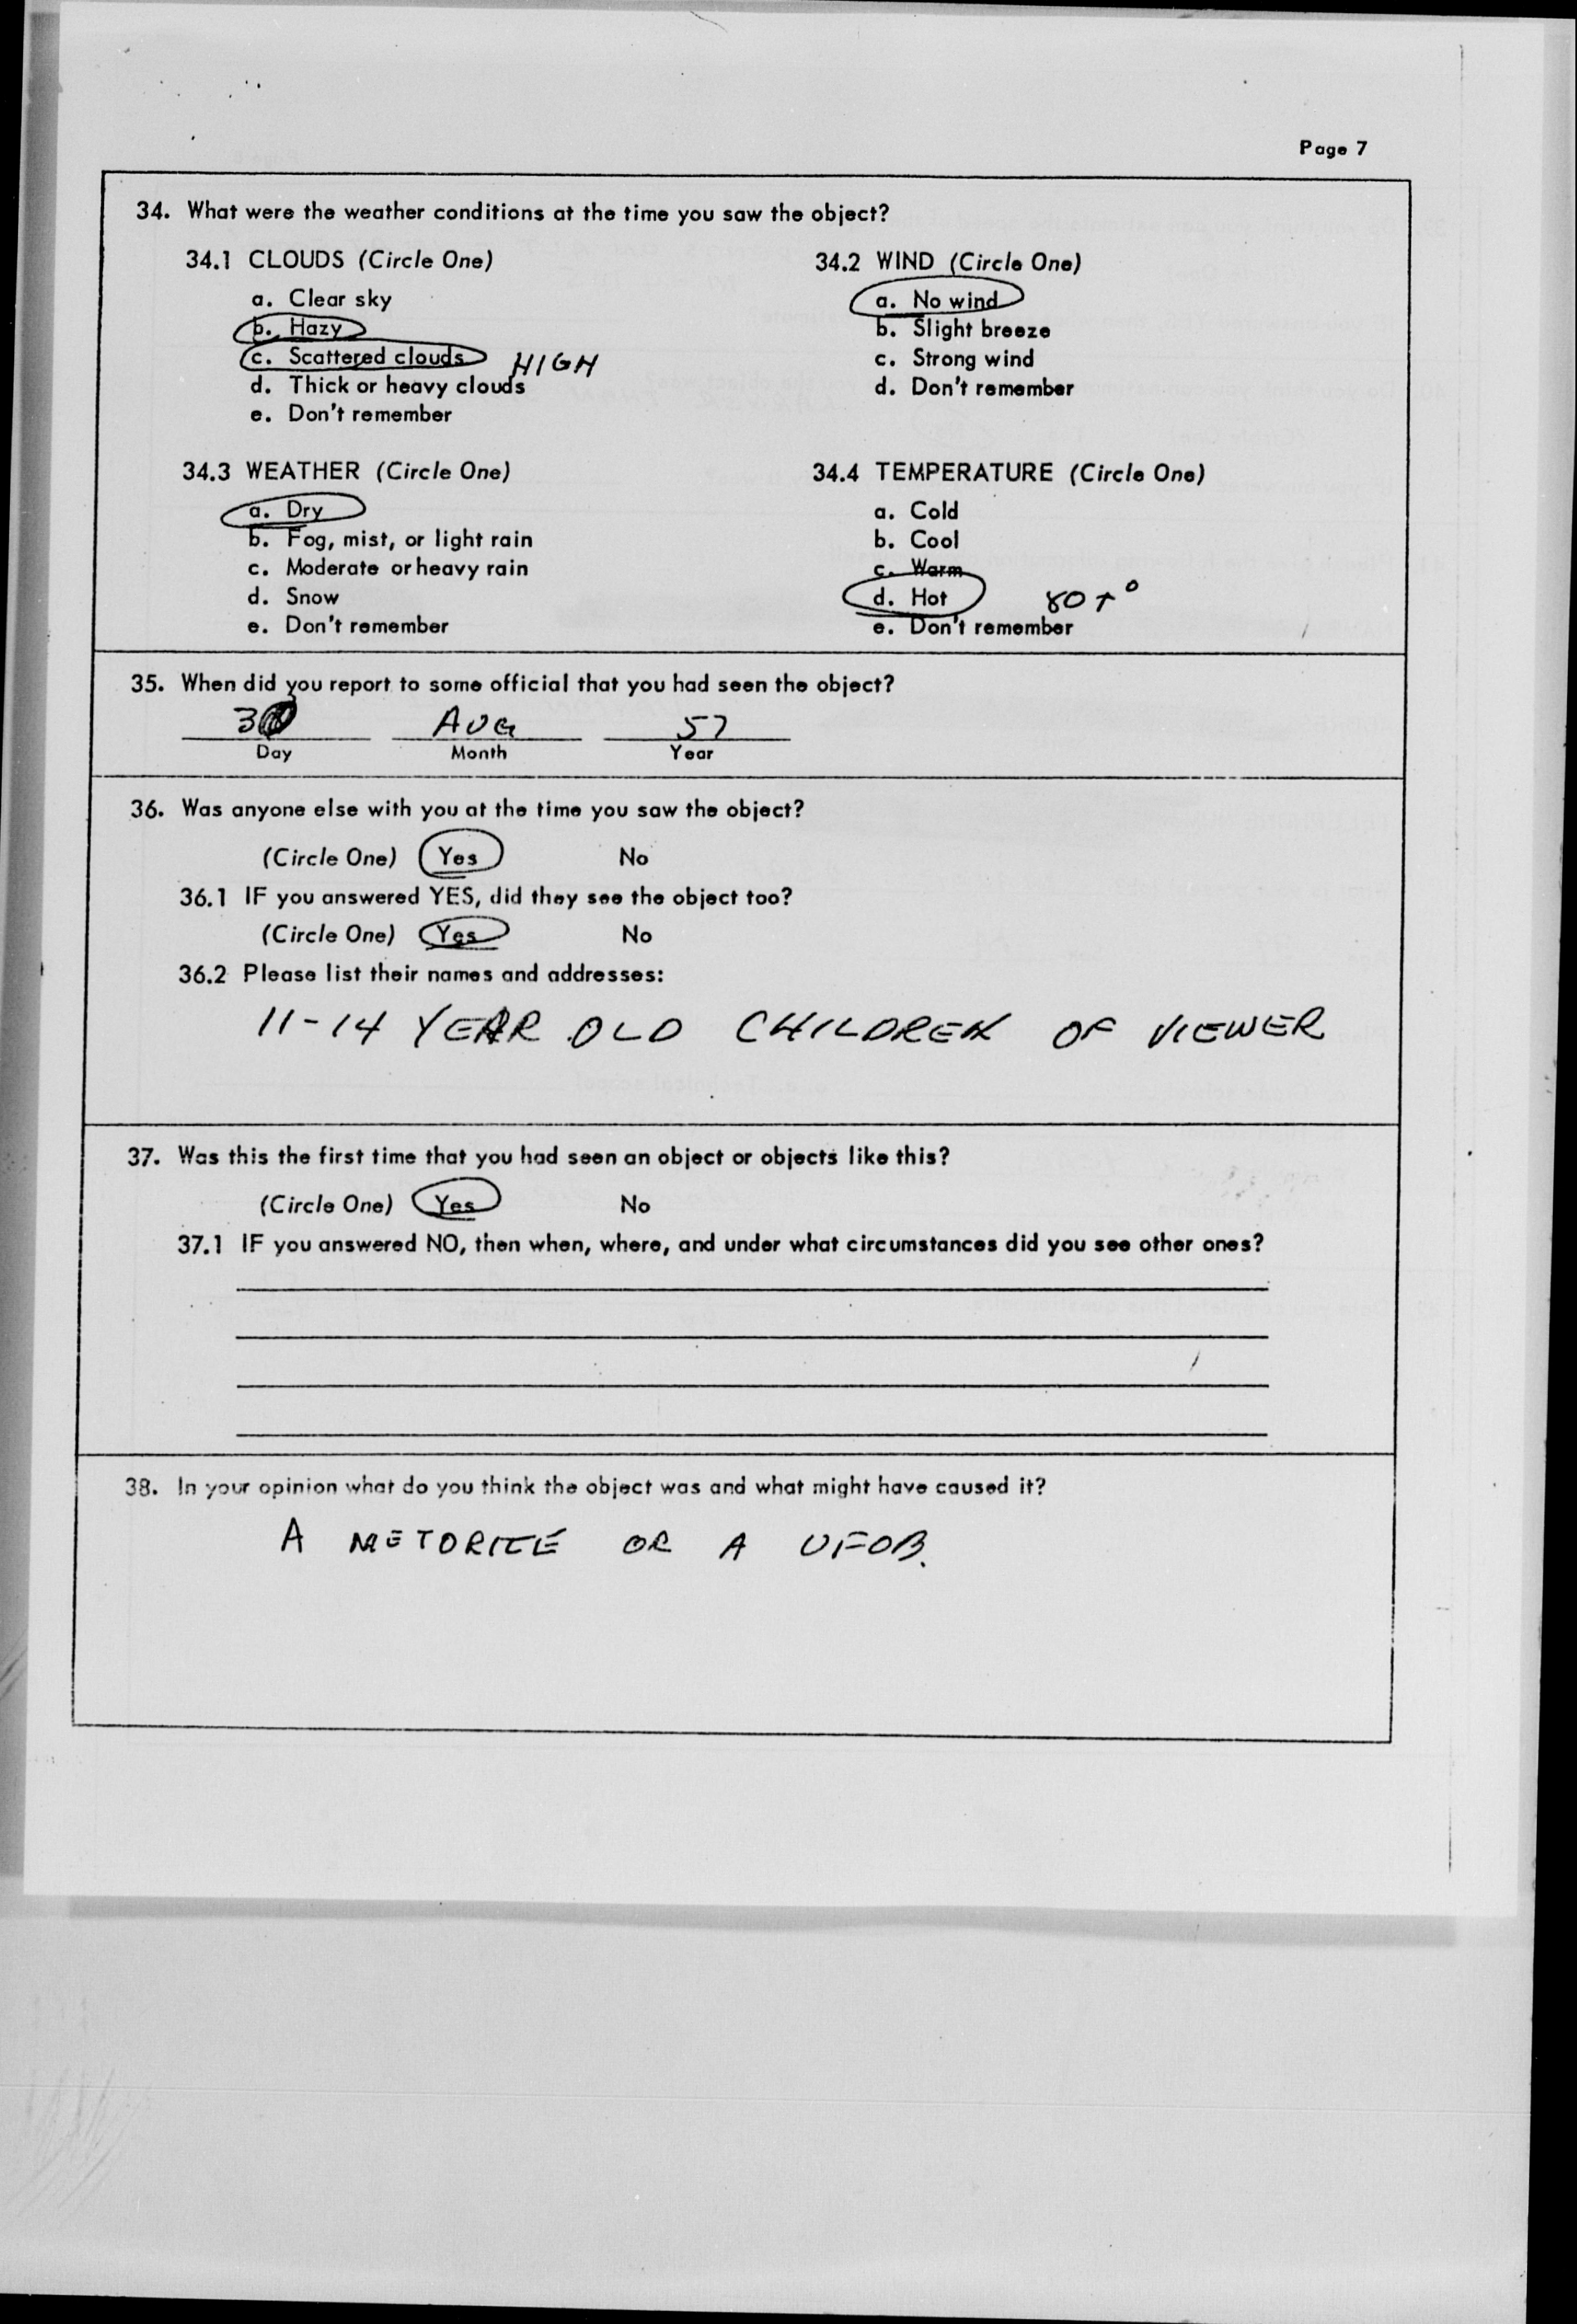 Page 7
34. What were the weather conditions at the time you saw the object?
34.1 CLOUDS (Circle One)
a. Clear sky
b. Hazy
c. Scattered clouds HIGH
d. Thick or heavy clouds
e. Don't remember
34.2 WIND (Circle One)
a. No wind
b. Slight breeze
c. Strong wind
d. Don't remember
34.3 WEATHER (Circle One)
a. Dry
b. Fog, mist, or light rain
c. Moderate or heavy rain
d. Snow
e. Don't remember
34.4 TEMPERATURE (Circle One)
a. Cold
b. Cool
c. Warm
d. Hot 80+°
e. Don't remember
35. When did you report to some official that you had seen the object?
AUG 57
Day Month Year
36. Was anyone else with you at the time you saw the object?
(Circle One) Yes No
36.1 IF you answered YES, did they see the object too?
(Circle One) Yes No
36.2 Please list their names and addresses:
11-14 YEAR OLD CHILDREN OF VIEWER
37. Was this the first time that you had seen an object or objects like this?
(Circle One) Yes No
37.1 IF you answered NO, then when, where, and under what circumstances did you see other ones?
38. In your opinion what do you think the object was and what might have caused it?
A METORITE OR A UFOB.